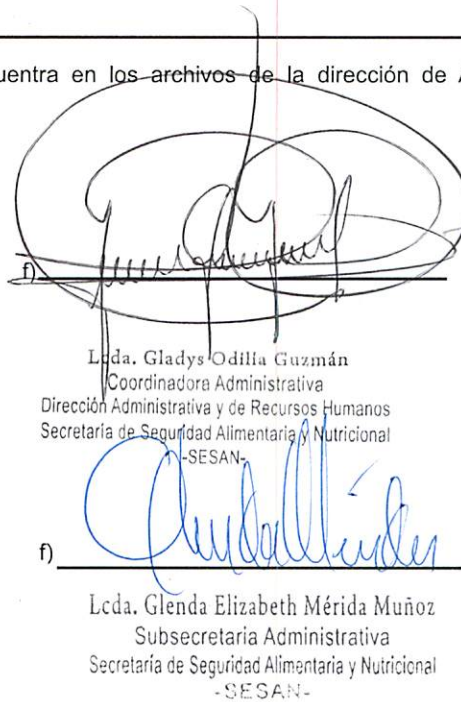 uentra en los archivos de la dirección de A
f)
Lcda. Gladys Odilia Guzmán
Coordinadora Administrativa
Dirección Administrativa y de Recursos Humanos
Secretaría de Seguridad Alimentaria y Nutricional
-SESAN-
f)
Lcda. Glenda Elizabeth Mérida Muñoz
Subsecretaria Administrativa
Secretaría de Seguridad Alimentaria y Nutricional
-SESAN-